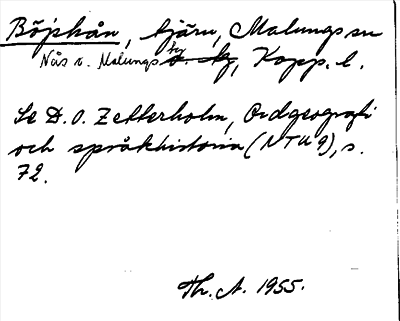 Böjskån, tjärn, Malungs sn
Nås o. Malungs tg, Kopp. l.
Se D. O. Zetterholm, Ordgeografi
och språkhistoria (NTU 9), s.
72.
Th. A. 1955.